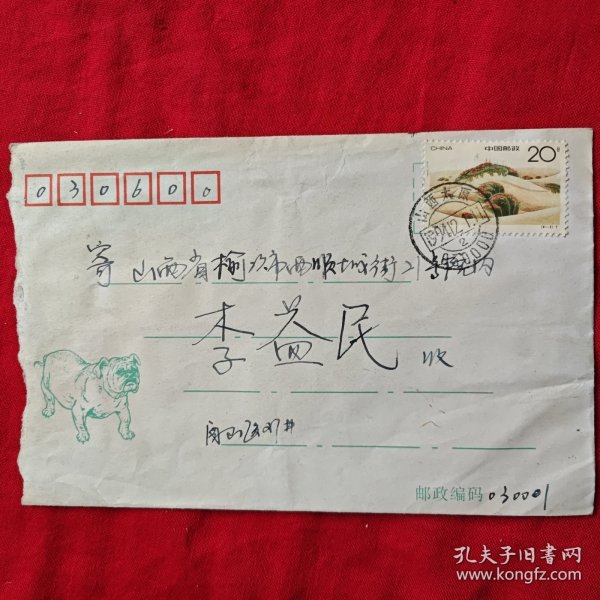 CHINA 中国邮政 20分
030600
山西太原
寄 山西省榆次市西顺城街21号院内
李益民 收
邮政编码 030001
孔夫子旧书网
www.kongfz.com